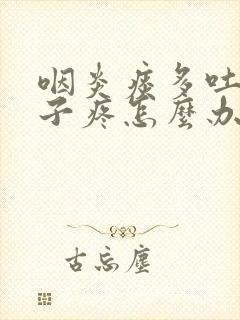 咽炎痰多吐
子疼怎麽办
古忘塵